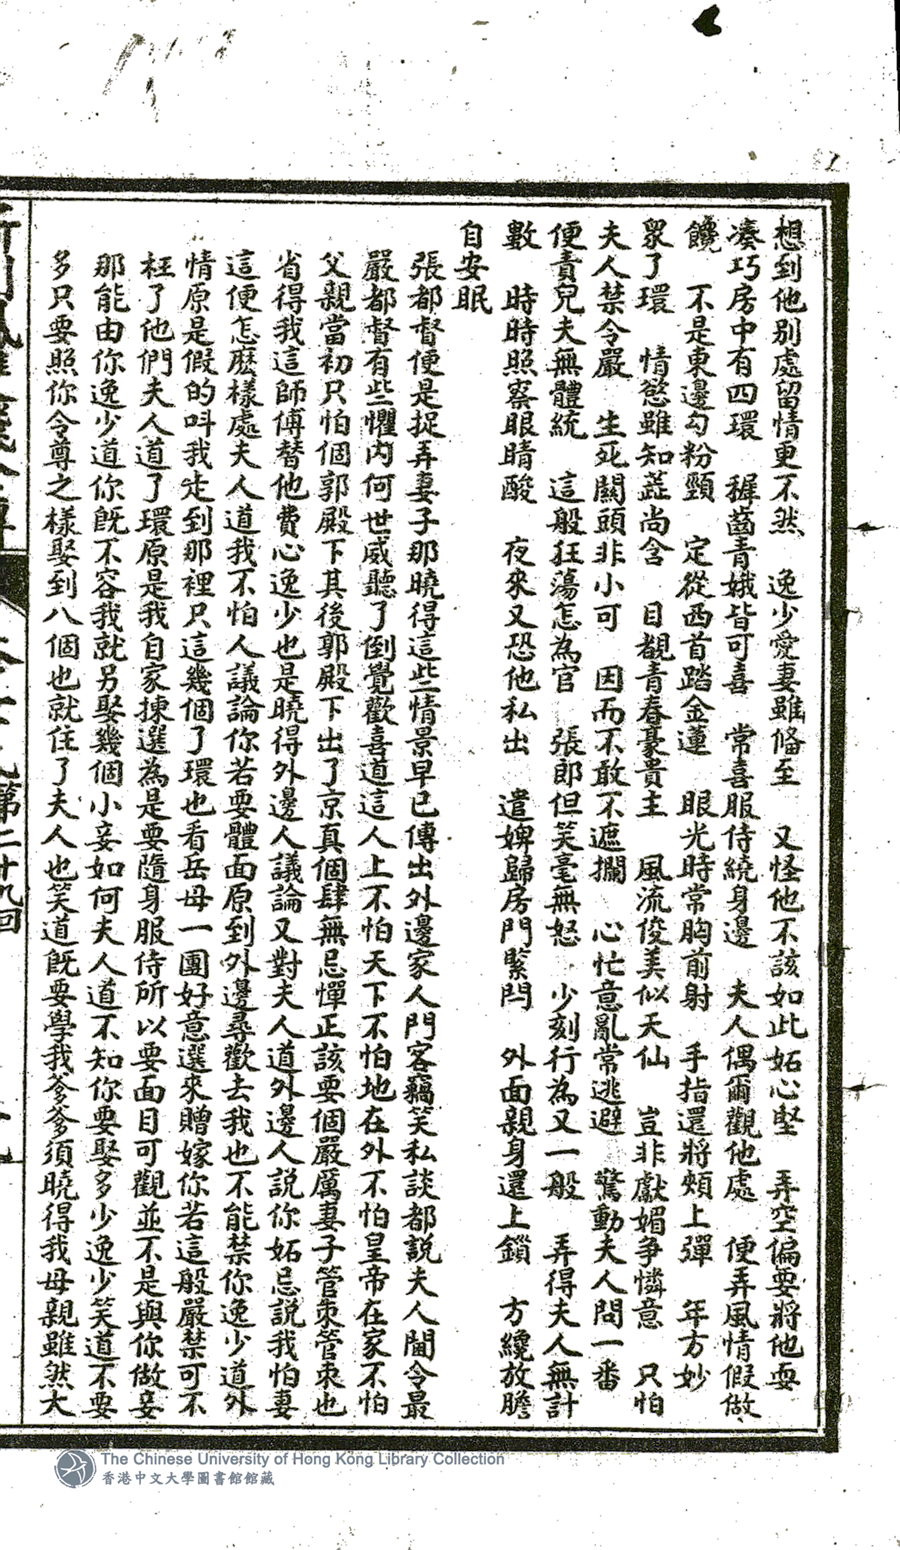 想到他別處留情更不然　逸少愛妻雖俻至　又怪他不該如此妬心堅　弄空偏要將他耍
凑巧房中有四環　穉齒青娥皆可喜　常喜服侍繞身邊　夫人偶爾觀他處　便弄風情假做
饞　不是東邊勾粉頸　定從西首踏金蓮　眼光時常胸前射　手指還將頰上彈　年方妙
眾了環　情慾雖知蕋尚含　目覩青春豪貴主　風流俊美似天仙　豈非獻媚爭憐意　只怕
夫人禁令嚴　生死關頭非小可　因而不敢不遮攔　心忙意亂常逃避　驚動夫人問一番
便責兒夫無體統　這般狂蕩怎為官　張郎但笑毫無怒　少刻行為又一般　弄得夫人無計
數　時時照察眼睛酸　夜來又恐他私出　遣婢歸房門緊閂　外面親身還上鎖　方纔放膽
自安眠
張都督便是捉弄妻子那曉得這些情景早已傳出外邊家人門客竊笑私談都說夫人閫令最
嚴都督有些懼內何世威聽了倒覺歡喜道這人上不怕天下不怕地在外不怕皇帝在家不怕
父親當初只怕個郭殿下其後郭殿下出了京真個肆無忌憚正該要個嚴厲妻子管束管束也
省得我這師傅替他費心逸少也是曉得外邊人議論又對夫人道外邊人說你妬忌說我怕妻
這便怎麼樣處夫人道我不怕人議論你若要體面原到外邊尋歡去我也不能禁你逸少道外
情原是假的呌我走到那裡只這幾個了環也看岳母一團好意選來贈嫁你若這般嚴禁可不
枉了他們夫人道了環原是我自家揀選為是要隨身服侍所以要面目可觀並不是與你做妾
那能由你逸少道你旣不容我就另娶幾個小妾如何夫人道不知你要娶多少逸少笑道不要
多只要照你令尊之樣娶到八個也就住了夫人也笑道旣要學我爹爹須曉得我母親雖然大
第二十九回
The Chinese University of Hong Kong Library Collection
香港中文大學圖書館館藏